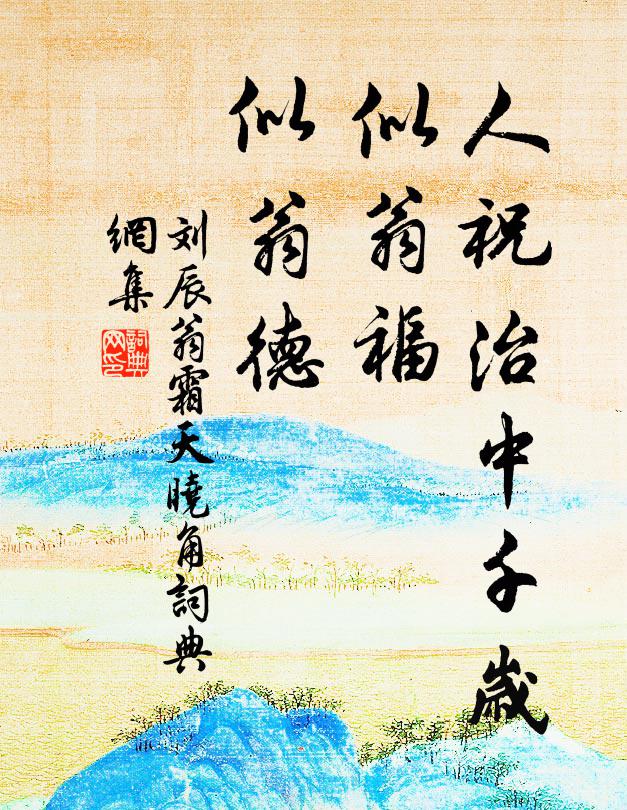 人祝治中千歲
似翁福
似翁德
刘辰翁霜天曉角詞典
網集
詞典
网印